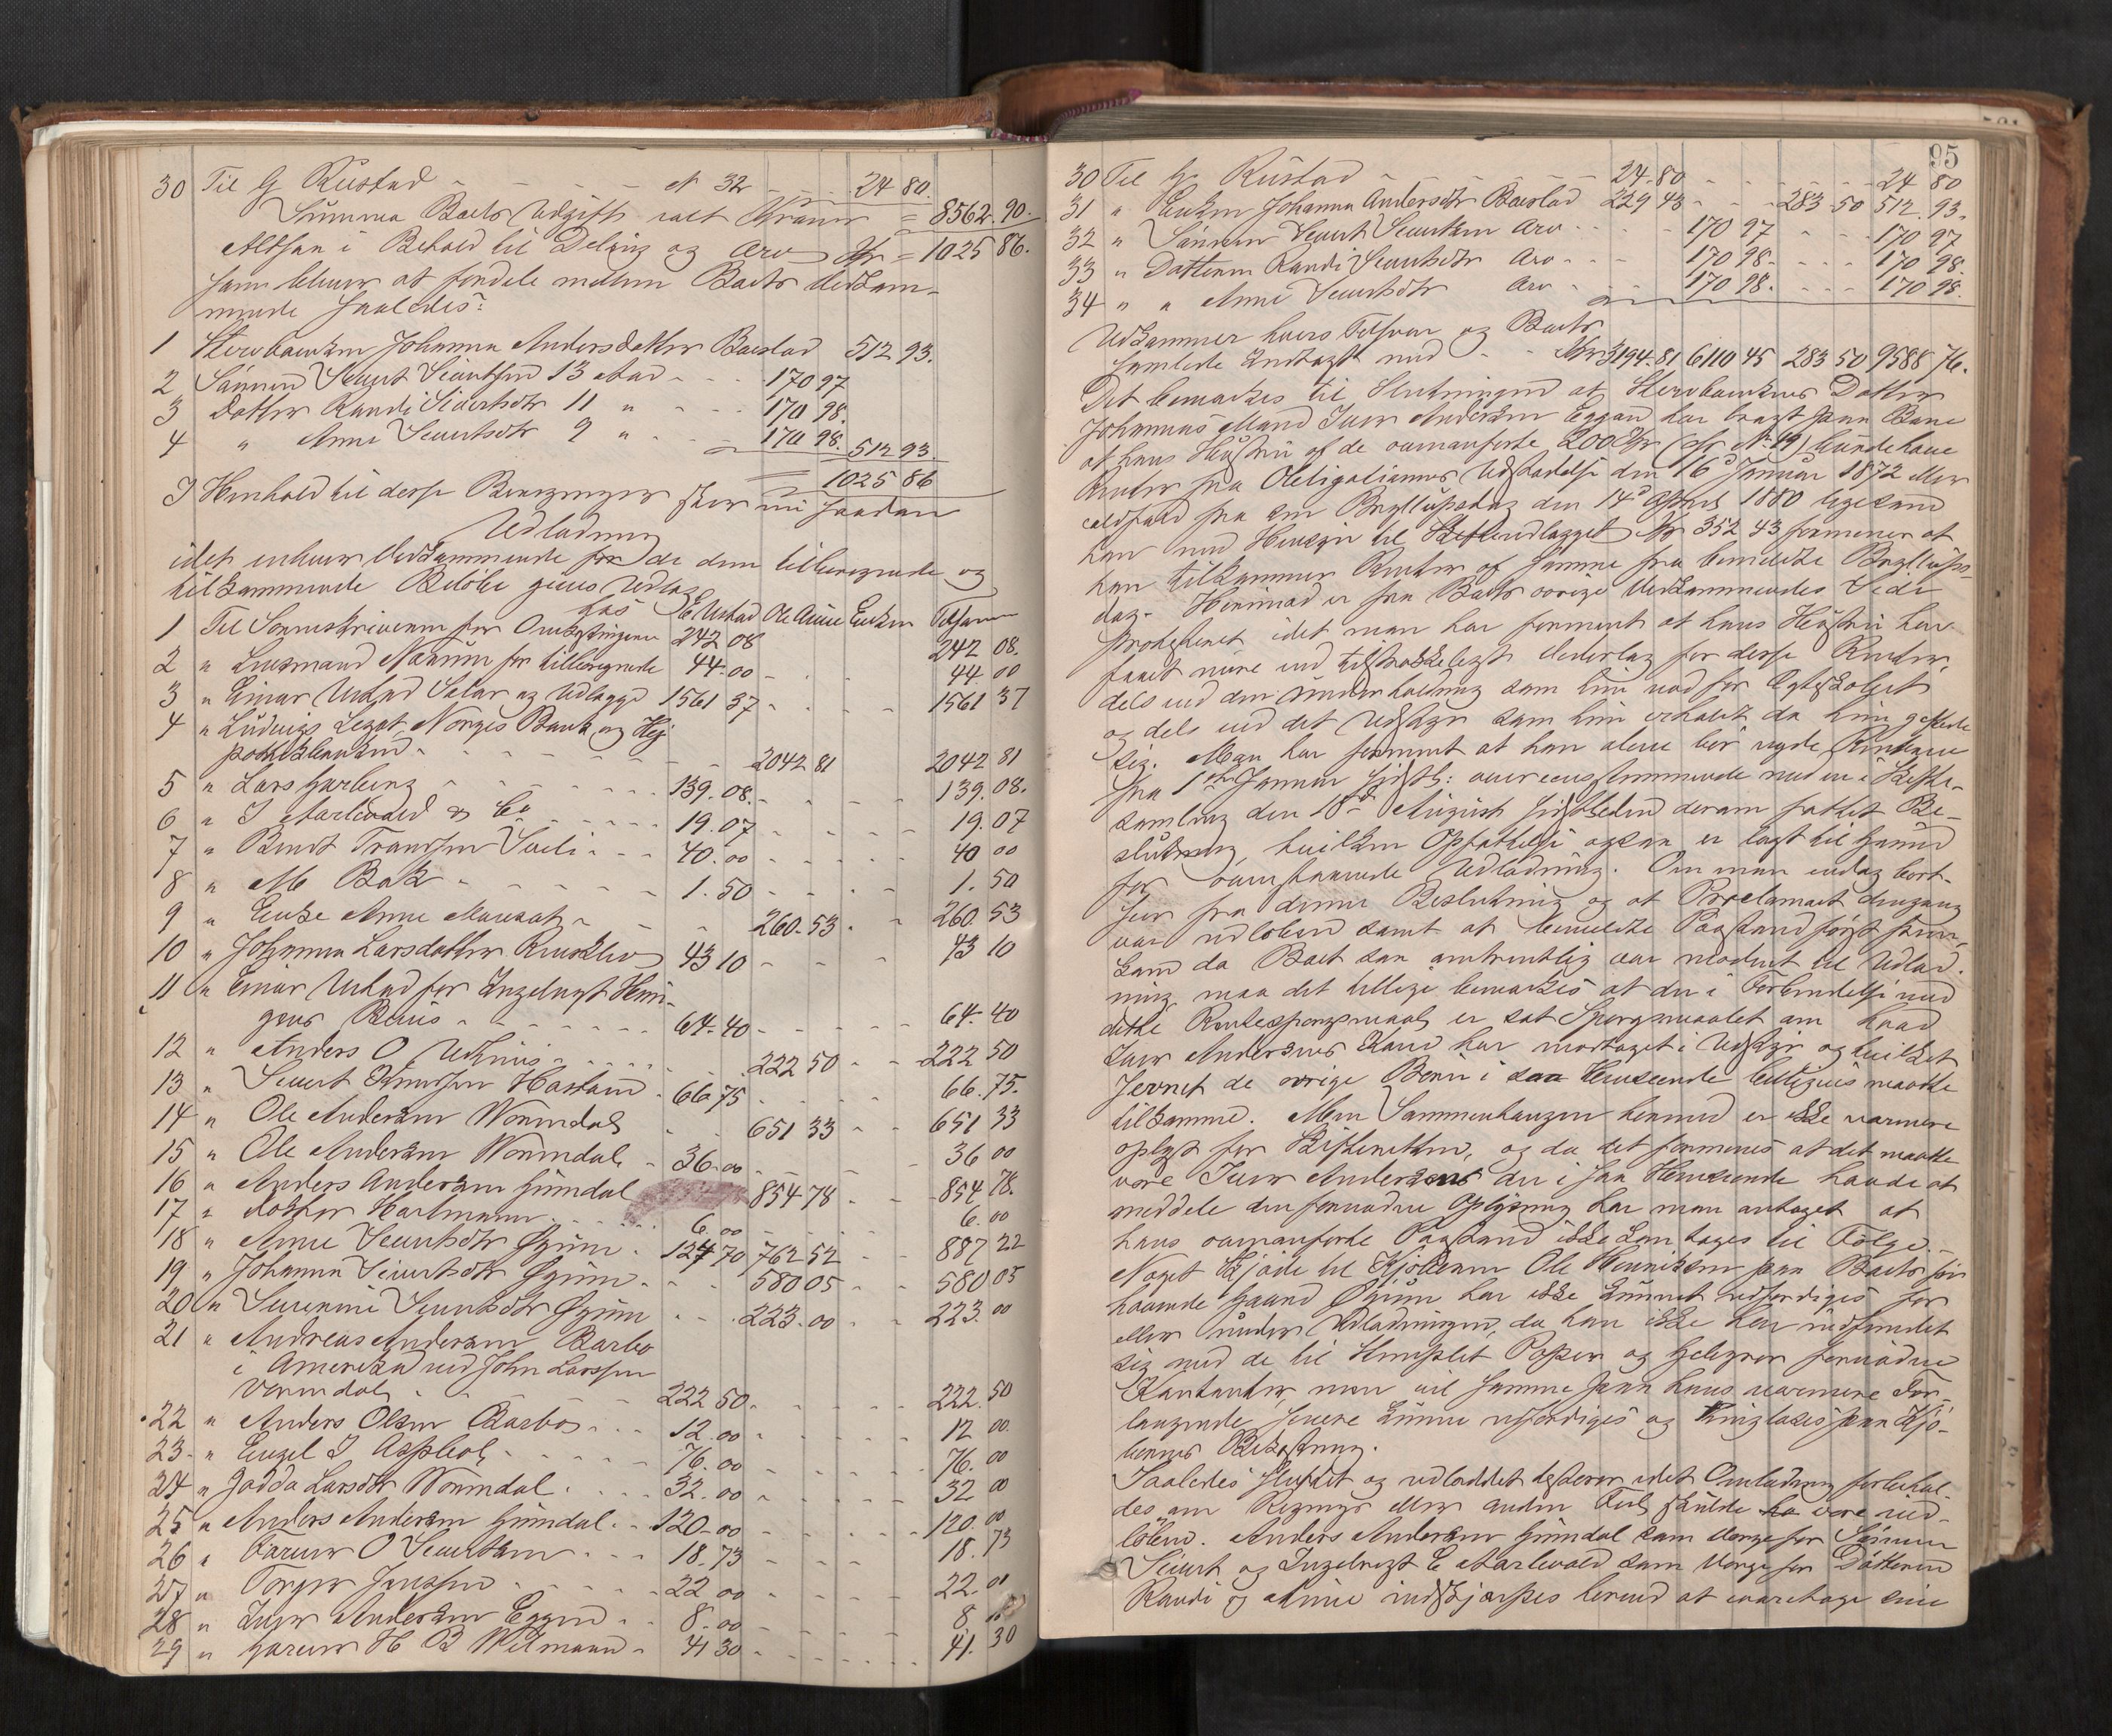 30 Til G Rustad - - - - № 32 - - - 24 80.
Summa Boets Udgift ialt Kroner = 8562.90.
Altsaa i Behold til Deling og Arv Kr = 1025 86.
som bliver at fordele mellem Boets Vedkom-
mende saaledes:
1 Stervboenken Johanna Andersdatter Baustad 512 93.
2 Sønnen Sivert Sivertsen 13 Aar - - - 170 97
3 Datter Randi Sivertsdtr 11 " - - - 170 98.
4 " Anne Sivertsdtr 9 " - - - 170 98. 512 93.
1025 86
I Henhold til disse Beregninger skeer nu saadan
Udlodning
idet enhver Vedkommende for de dem tilberegnede og
tilkommende Beløbe gives Udlæg
hos E Urstad Ole Aune Enken Tilsam
1 Til Sorenskriveren for Omkostningerne 242 08 242 08.
2 " Lensmand Navrum for tilberegnede 44.00 - - - 44 00
3 " Einar Urstad Salær og Udlagge 1561 37 - - - 1561 37
4 " Ludvigs Legat, Norges Bank og Hy-
pothekbanken - - - - - 2042 81 2042 81
5 " Lars Garberg - - - - 139.08. - - - 139.08.
6 " I Aarlivold & Co - - - - 19.07 - - - 19.07
7 " Bendt Trondsen Sveli - - - 40.00 - - - 40 00
8 " M Bak - - - - 1.50 - - - 1.50
9 " Enke Anne Mausat - - - 260.53. - 260 53
10 " Johanna Larsdatter Renskleiv 43 10 - - - 43 10
11 " Einar Urstad for Ingebrigt Henni-
gens Beus - - - - 64.40 - - - 64.40
12 " Anders O Uthus - - - 222 50 - - 222 50
13 " Sivert Knudsen Hastand - 66 75 - - - 66.75.
14 " Ole Andersen Vormdal - - 651 33 - - 651 33
15 " Ole Andersen Vormdal - 36.00 - - - 36 00
16 " Anders Andersen Grimdal 854 78 - - 854 78.
17 " Doktor Hartmann - - - 6.00 - - - 6.00
18 " Anne Sivertsdtr Øyum - 124 70 762 52 - - 887 22
19 " Johanna Sivertsdtr Øyum - - - 580 05 - - 580 05
20 " Serenine Sivertsdtr Øyum - - - 223.00 - - 223.00
21 " Andreas Andersen Barbo
i Amerika ved John Larssen
Vormdal - - - 222 50. - - - 222.50
22 " Anders Olsen Barbos - - - 12.00 - - - 12 00.
23 " Engel I Aspless - - - - 76.00 - - - 76.00
24 " Jodda Larsdtr Vormdal - - - 32.00 - - - 32 00
25 " Anders Andersen Grimdal - - 120.00 - - - 120.00
26 " Farver O Sivertsen - - - 18.73 - - - 18.73
27 " Torger Jenssen - - - - 22 00 - - - 22.00
28 " Iver Andersen Eggen - - 8.00 - - - 8.
29 " Garver H B Wilmann - 41 30 - - - 41.30
95
30 Til G. Rustad - - - - 24.80 - - - - 24 80
31 " Enken Johanna Andersdtr Baustad 229 43 - - 283 50 512.93.
32 " Sønnen Sivert Sivertsen Arv - - - 170 97 - - - 170 97
33 " Datteren Randi Sivertsdtr Arv - - - 170 98. - - - 170 98.
34 " " Anne Sivertsdtr Arv - - - 170 98. - - - 170 98.
Udkommer hvers Tilsvar og Boets
samlede Indtægt med - - Kr 3194.81 6110 45 283 50 9588 76.
Det bemærkes til Slutningen at Stervboenkens Datter
Johannas Mand Iver Andersen Eggen har lagt paa Bane
at hans Hustru af de ovenanførte 200 Spd (cfr № 19) kunde have
Renter fra Obligationens Udstædelse den 16d Januar 1872 eller
ialdfald fra sin Bryllupsdag den 14d April 1880 ligesom
han med Hensyn til Skifteudlægget Kr 352.43 formener at
han tilkommer Renter af samme fra bemeldte Bryllups-
dag. Herimod er fra Boets øvrige Vedkommendes Side
protesteret idet man har forment at hans Hustru har
faaet mere end tilstrækkeligt Vederlag for disse Renter,
dels ved den Underholdning som hun nød før Egteskabet
og dels ved det Udstyr som hun erholdt da hun giftede
sig. Man har forment at han alene bør nyde Renterne
fra 1ste Januar sidstl: overensstemmende med en i Skifte-
samling den 18d August sidstleden derom fattet Be-
slutning, hvilken Opfattelse ogsaa er lagt til Grund
for ovenstaaende Udlodning. Om man endog bort-
seer fra denne Beslutning og at Proclamaet dengang
var udløben samt at bemeldte Paastand først frem-
kom da Boet saa omtrentlig var modent til Udlod-
ning maa det tillige bemærkes at der i Forbindelse med
dette Rentespørgsmaal er sat Spørgsmaalet om hvad
Iver Andersens Kone har modtaget i Udstyr og hvilket
Jevnet de øvrige Børn i saa Henseende billigvis maatte
tilkomme. Men Sammenhængen hermed er ikke nærmere
oplyst for Skifteretten, og da det formenes at det maatte
være Iver Andersens der i saa Henseende havde at
meddele den fornødne Oplysning har man antaget at
hans ovenanførte Paastand ikke kan tages til Følge.
Noget Skjøde til Kjøberen Ole Henriksen paa Boets paa-
havende Gaard Øyum har ikke kunnet udfærdiges før
eller under Udlodningen, da han ikke har indfundet
sig med de til Stemplet Papir og Gebyrer fornødne
Kontanter, men vil samme paa hans nærmere For-
langende senere kunne udfærdiges og thinglæses paa Kjø-
berens Bekostning.
Saaledes sluttet og udloddet desterer idet Omlodning forbehol-
des om Regnings eller anden Feil skulde være ind-
løben. Anders Andersen Grimdal som Verge for Sønnen
Sivert og Ingebrigt E Aarlivold som Verge for Døtrene
Randi og Anne indskjærpes herved at varetage sine